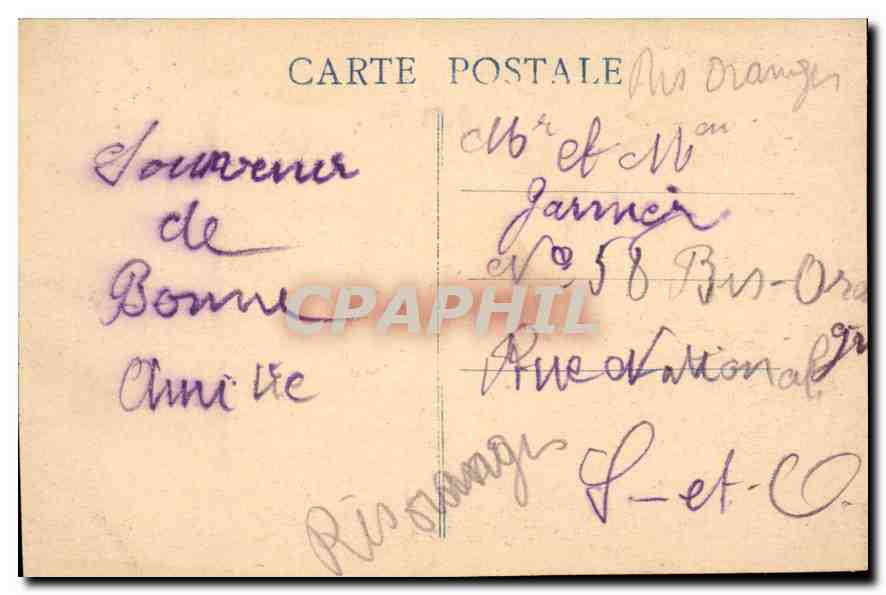 CARTE POSTALE
Ris Oranges
Souvenir
de
Bonne
Amitié
Mr et Mme
Garnier
No 58 Ris-Oran
gis
Rue National
S-et-O.
Ris oranges
CPAPHIL